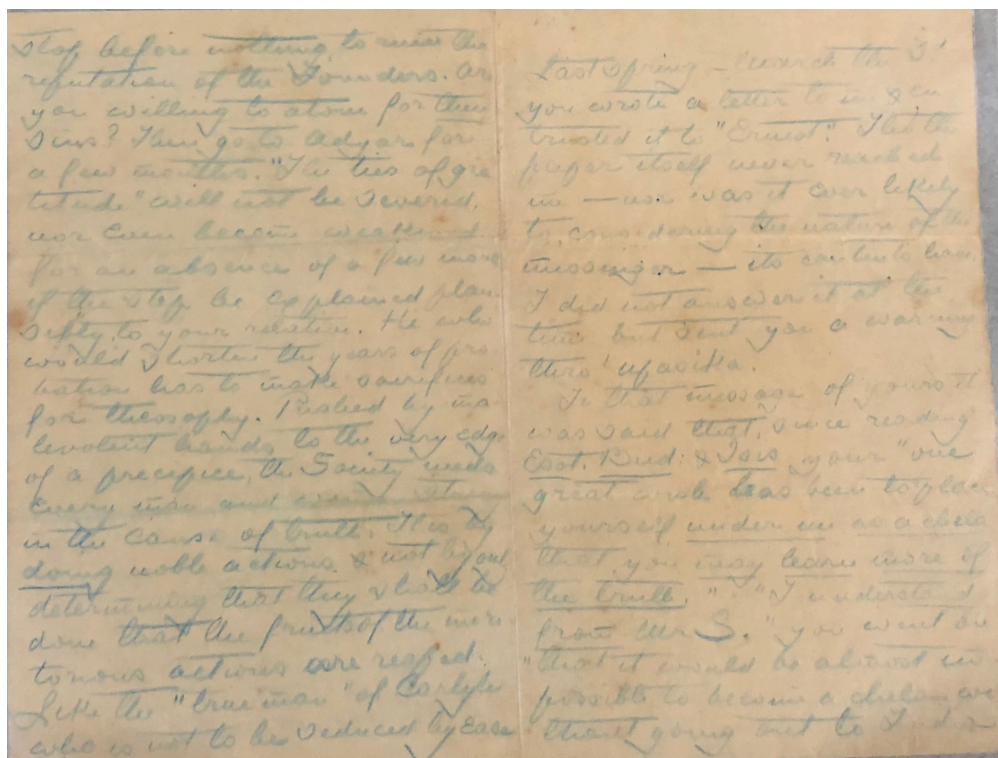 stop before nothing to ruin the
reputation of the Founders. Are
you willing to atone for their
sins? Then go to Adyar for
a few months. "The ties of gra
titude" will not be severed,
nor even become weakened
for an absence of a few months
if the step be explained plau
sibly to your relation. He who
would shorten the years of pro
bation has to make sacrifices
for theosophy. Pushed by ma
levolent hands to the very edge
of a precipice, the Society needs
every man and woman strong
in the cause of truth. It is by
doing noble actions & not by only
determining that they shall be
done that the fruits of the meri
torious actions are reaped.
Like the "true man" of Carlyle
who is not to be seduced by ease
Last spring — March the 3
you wrote a letter to me & en
trusted it to "Ernest". Tho' the
paper itself never reached
me — nor was it ever likely
to, considering the nature of the
messenger — its contents have.
I did not answer it at the
time but sent you a warning
thro' Upasika.
In that message of yours it
was said that, since reading
Esot. Bud: & Isis your "one
great wish has been to place
yourself under me as a chela
that you may learn more of
the truth." "I understand
from Mr S." you went on
"that it would be almost im
possible to become a chela wi
thout going out to India